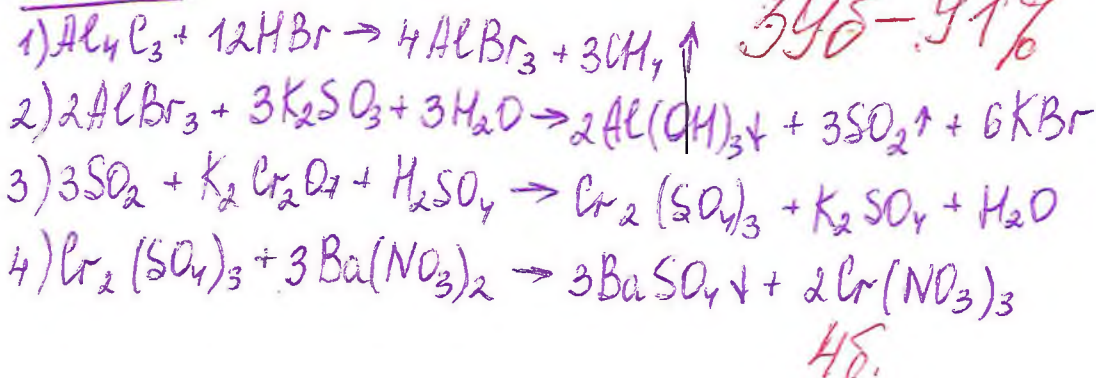 39б – 91%
1) Al₄C₃ + 12HBr → 4AlBr₃ + 3CH₄ ↑
2) 2AlBr₃ + 3K₂SO₃ + 3H₂O → 2Al(OH)₃↓ + 3SO₂↑ + 6KBr
3) 3SO₂ + K₂Cr₂O₇ + H₂SO₄ → Cr₂(SO₄)₃ + K₂SO₄ + H₂O
4) Cr₂(SO₄)₃ + 3Ba(NO₃)₂ → 3BaSO₄↓ + 2Cr(NO₃)₃
4б.